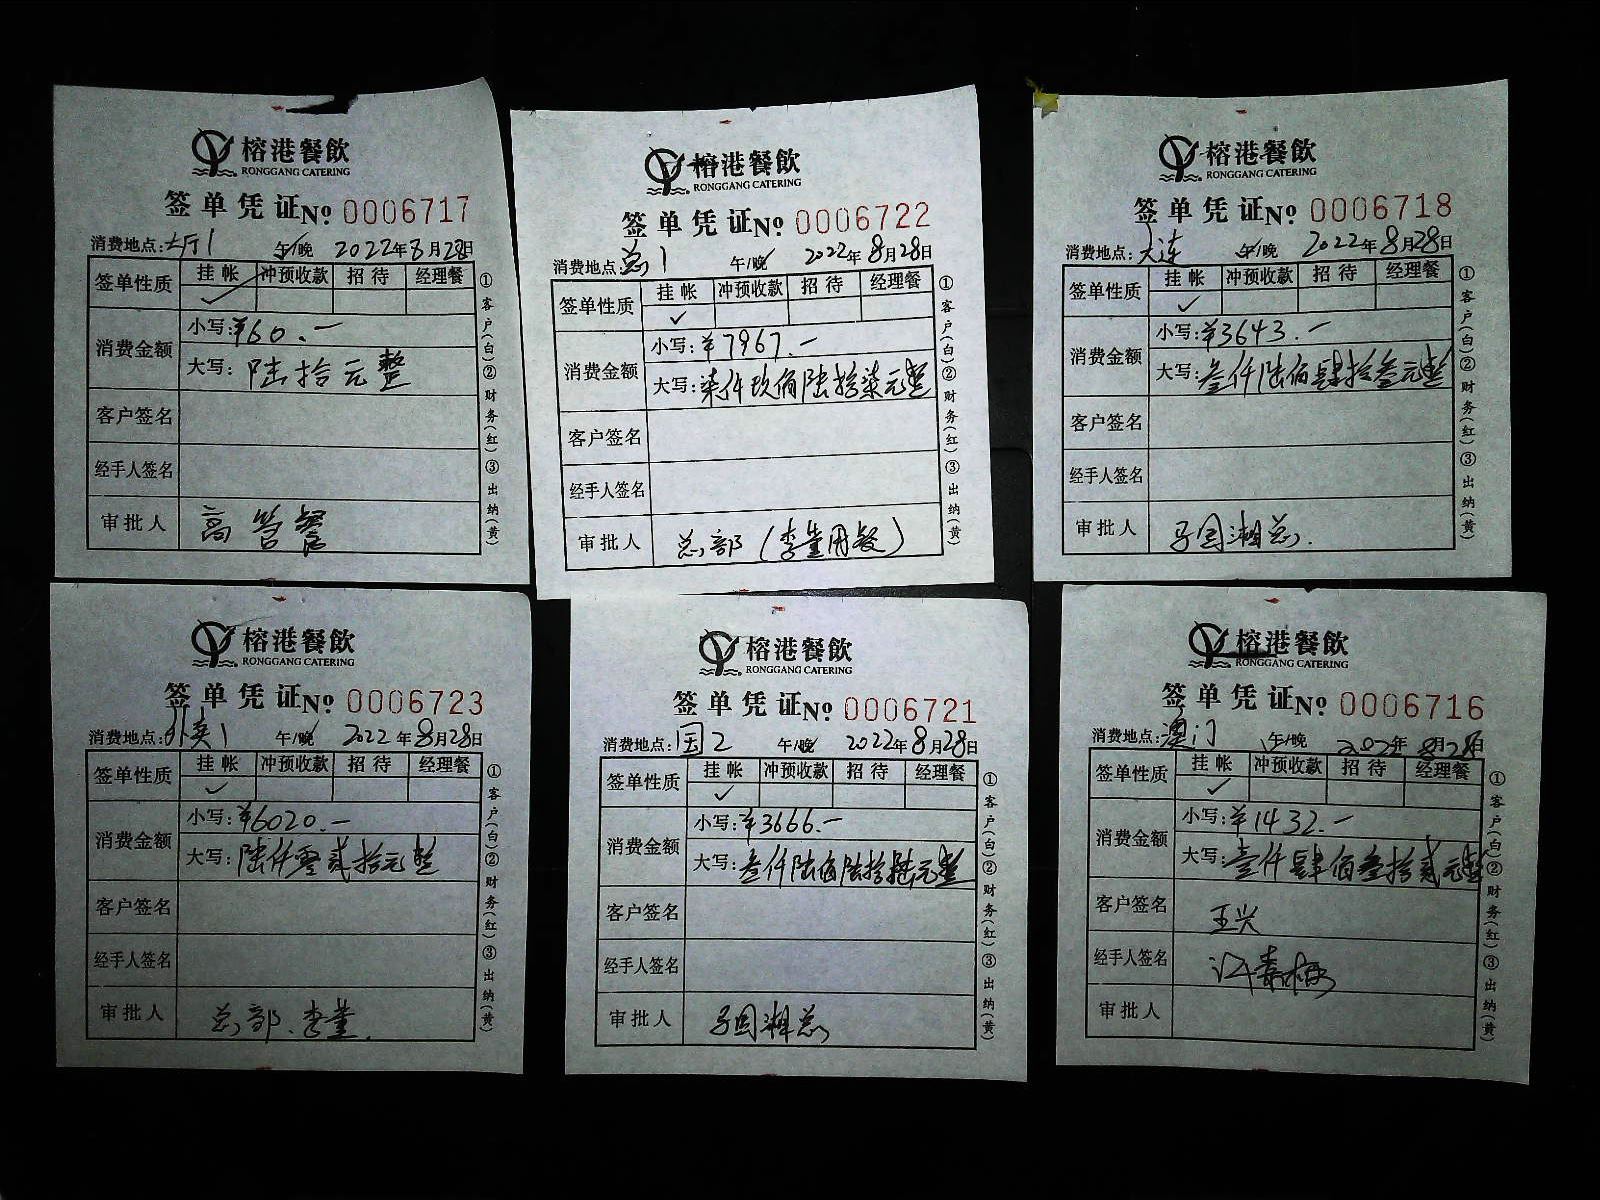 榕港餐飲
RONGGANG CATERING
签单凭证 № 0006717
消费地点: 大厅1 午/晚 2022年8月28日
签单性质 挂帐 冲预收款 招待 经理餐
✓
消费金额 小写: ¥60.一
大写: 陆拾元整
客户签名
经手人签名
审批人 高管餐
①客户(白)②财务(红)③出纳(黄)
榕港餐飲
RONGGANG CATERING
签单凭证 № 0006722
消费地点: 总1 午/晚 2022年8月28日
签单性质 挂帐 冲预收款 招待 经理餐
✓
消费金额 小写: ¥7967.一
大写: 柒仟玖佰陆拾柒元整
客户签名
经手人签名
审批人 总部(李董用餐)
①客户(白)②财务(红)③出纳(黄)
榕港餐飲
RONGGANG CATERING
签单凭证 № 0006718
消费地点: 大连 午/晚 2022年8月28日
签单性质 挂帐 冲预收款 招待 经理餐
✓
消费金额 小写: ¥3643.一
大写: 叁仟陆佰肆拾叁元整
客户签名
经手人签名
审批人 国湘总.
①客户(白)②财务(红)③出纳(黄)
榕港餐飲
RONGGANG CATERING
签单凭证 № 0006723
消费地点: 外卖1 午/晚 2022年8月28日
签单性质 挂帐 冲预收款 招待 经理餐
✓
消费金额 小写: ¥6020.一
大写: 陆仟零贰拾元整
客户签名
经手人签名
审批人 总部.李董.
①客户(白)②财务(红)③出纳(黄)
榕港餐飲
RONGGANG CATERING
签单凭证 № 0006721
消费地点: 国2 午/晚 2022年8月28日
签单性质 挂帐 冲预收款 招待 经理餐
✓
消费金额 小写: ¥3666.一
大写: 叁仟陆佰陆拾陆元整
客户签名
经手人签名
审批人 国湘总
①客户(白)②财务(红)③出纳(黄)
榕港餐飲
RONGGANG CATERING
签单凭证 № 0006716
消费地点: 澳门 午/晚 2022年8月28日
签单性质 挂帐 冲预收款 招待 经理餐
✓
消费金额 小写: ¥1432.一
大写: 壹仟肆佰叁拾贰元整
客户签名 王兴
经手人签名
审批人
①客户(白)②财务(红)③出纳(黄)